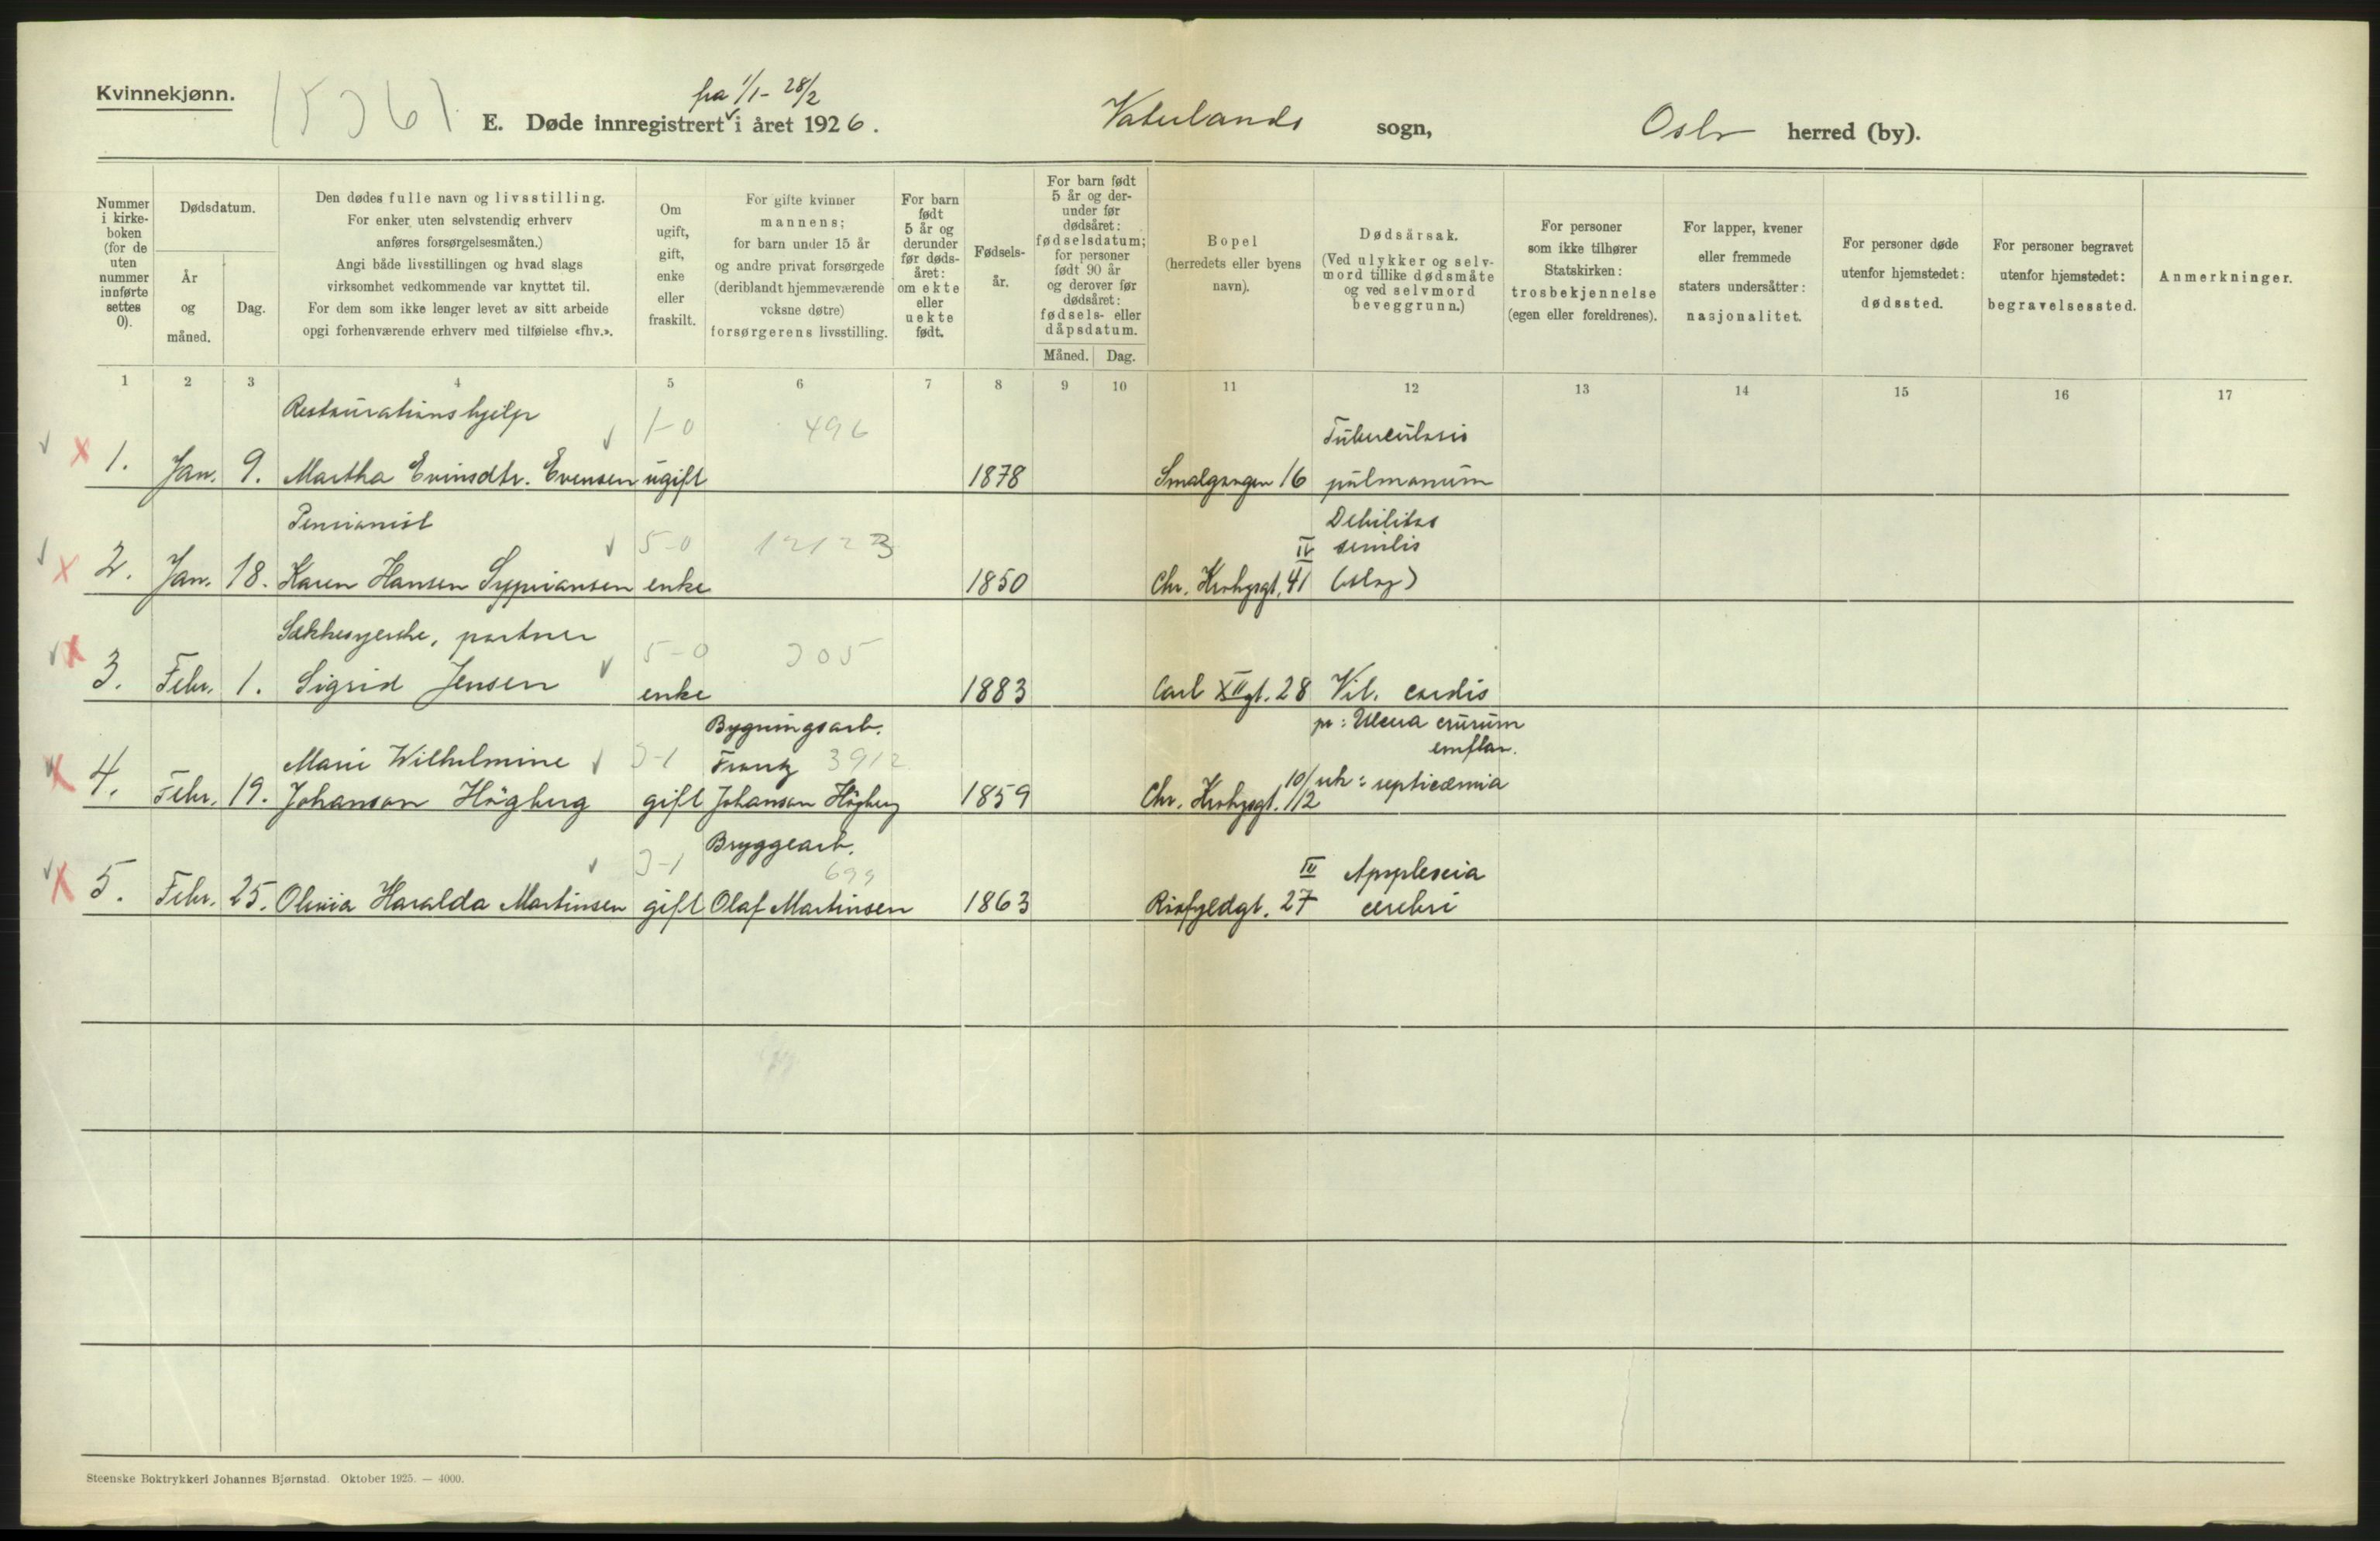 Kvinnekjønn.
fra 1/1 - 28/2
E. Døde innregistrert i året 1926.
Vaterlands sogn,
Oslo herred (by).
Nummer i kirkeboken (for de uten nummer innførte settes 0).
Dødsdatum.
År og måned.
Dag.
Den dødes fulle navn og livsstilling.
For enker uten selvstendig erhverv
anføres forsørgelsesmåten.)
Angi både livsstillingen og hvad slags
virksomhet vedkommende var knyttet til.
For dem som ikke lenger levet av sitt arbeide
opgi forhenværende erhverv med tilføielse «fhv.».
Om ugift, gift, enke eller fraskilt.
For gifte kvinner
mannens;
for barn under 15 år
og andre privat forsørgede
(deriblandt hjemmeværende
voksne døtre)
forsørgerens livsstilling.
For barn født 5 år og derunder før dødsåret: om ekte eller uekte født.
Fødselsår.
For barn født 5 år og derunder før dødsåret: fødselsdatum; for personer født 90 år og derover før dødsåret: fødsels- eller dåpsdatum.
Måned. Dag.
Bopel
(herredets eller byens
navn).
Dødsårsak.
(Ved ulykker og selvmord tillike dødsmåte og ved selvmord beveggrunn.)
For personer
som ikke tilhører
Statskirken:
trosbekjennelse
(egen eller foreldrenes).
For lapper, kvener
eller fremmede
staters undersåtter:
nasjonalitet.
For personer døde
utenfor hjemstedet:
dødssted.
For personer begravet
utenfor hjemstedet:
begravelsessted.
Anmerkninger.
1 2 3 4 5 6 7 8 9 10 11 12 13 14 15 16 17
Restaurationshjelp 1-0 496 Tuberculosis
1. Jan. 9. Martha Evinsdtr. Evensen ugift 1878 Smalgangen 16 pulmonum
Pensionist 5-0 Debilitas
IV senilis
2. Jan. 18. Karen Hansen Sypriansen enke 1850 Chr. Krohgsgt. 41
Sekkesyerske, portner 5-0 305
3. Febr. 1. Sigrid Jensen enke 1883 Carl XII gt. 28 Vit. cordis
Bygningsarb. pr: Ulcera crurum
Marie Wilhelmine Frantz 3912 emflam.
4. Febr. 19. Johanson Högberg gift Johanson Högberg 1859 Chr. Krohgsgt. 10/12 uk: septicæmia
Bryggearb.
699 IV Apoplexia
5. Febr. 25. Olivia Haralda Martinsen gift Olaf Martinsen 1863 Risfyeldgt. 27 cerebri
Steenske Boktrykkeri Johannes Bjørnstad. Oktober 1925. — 4000.